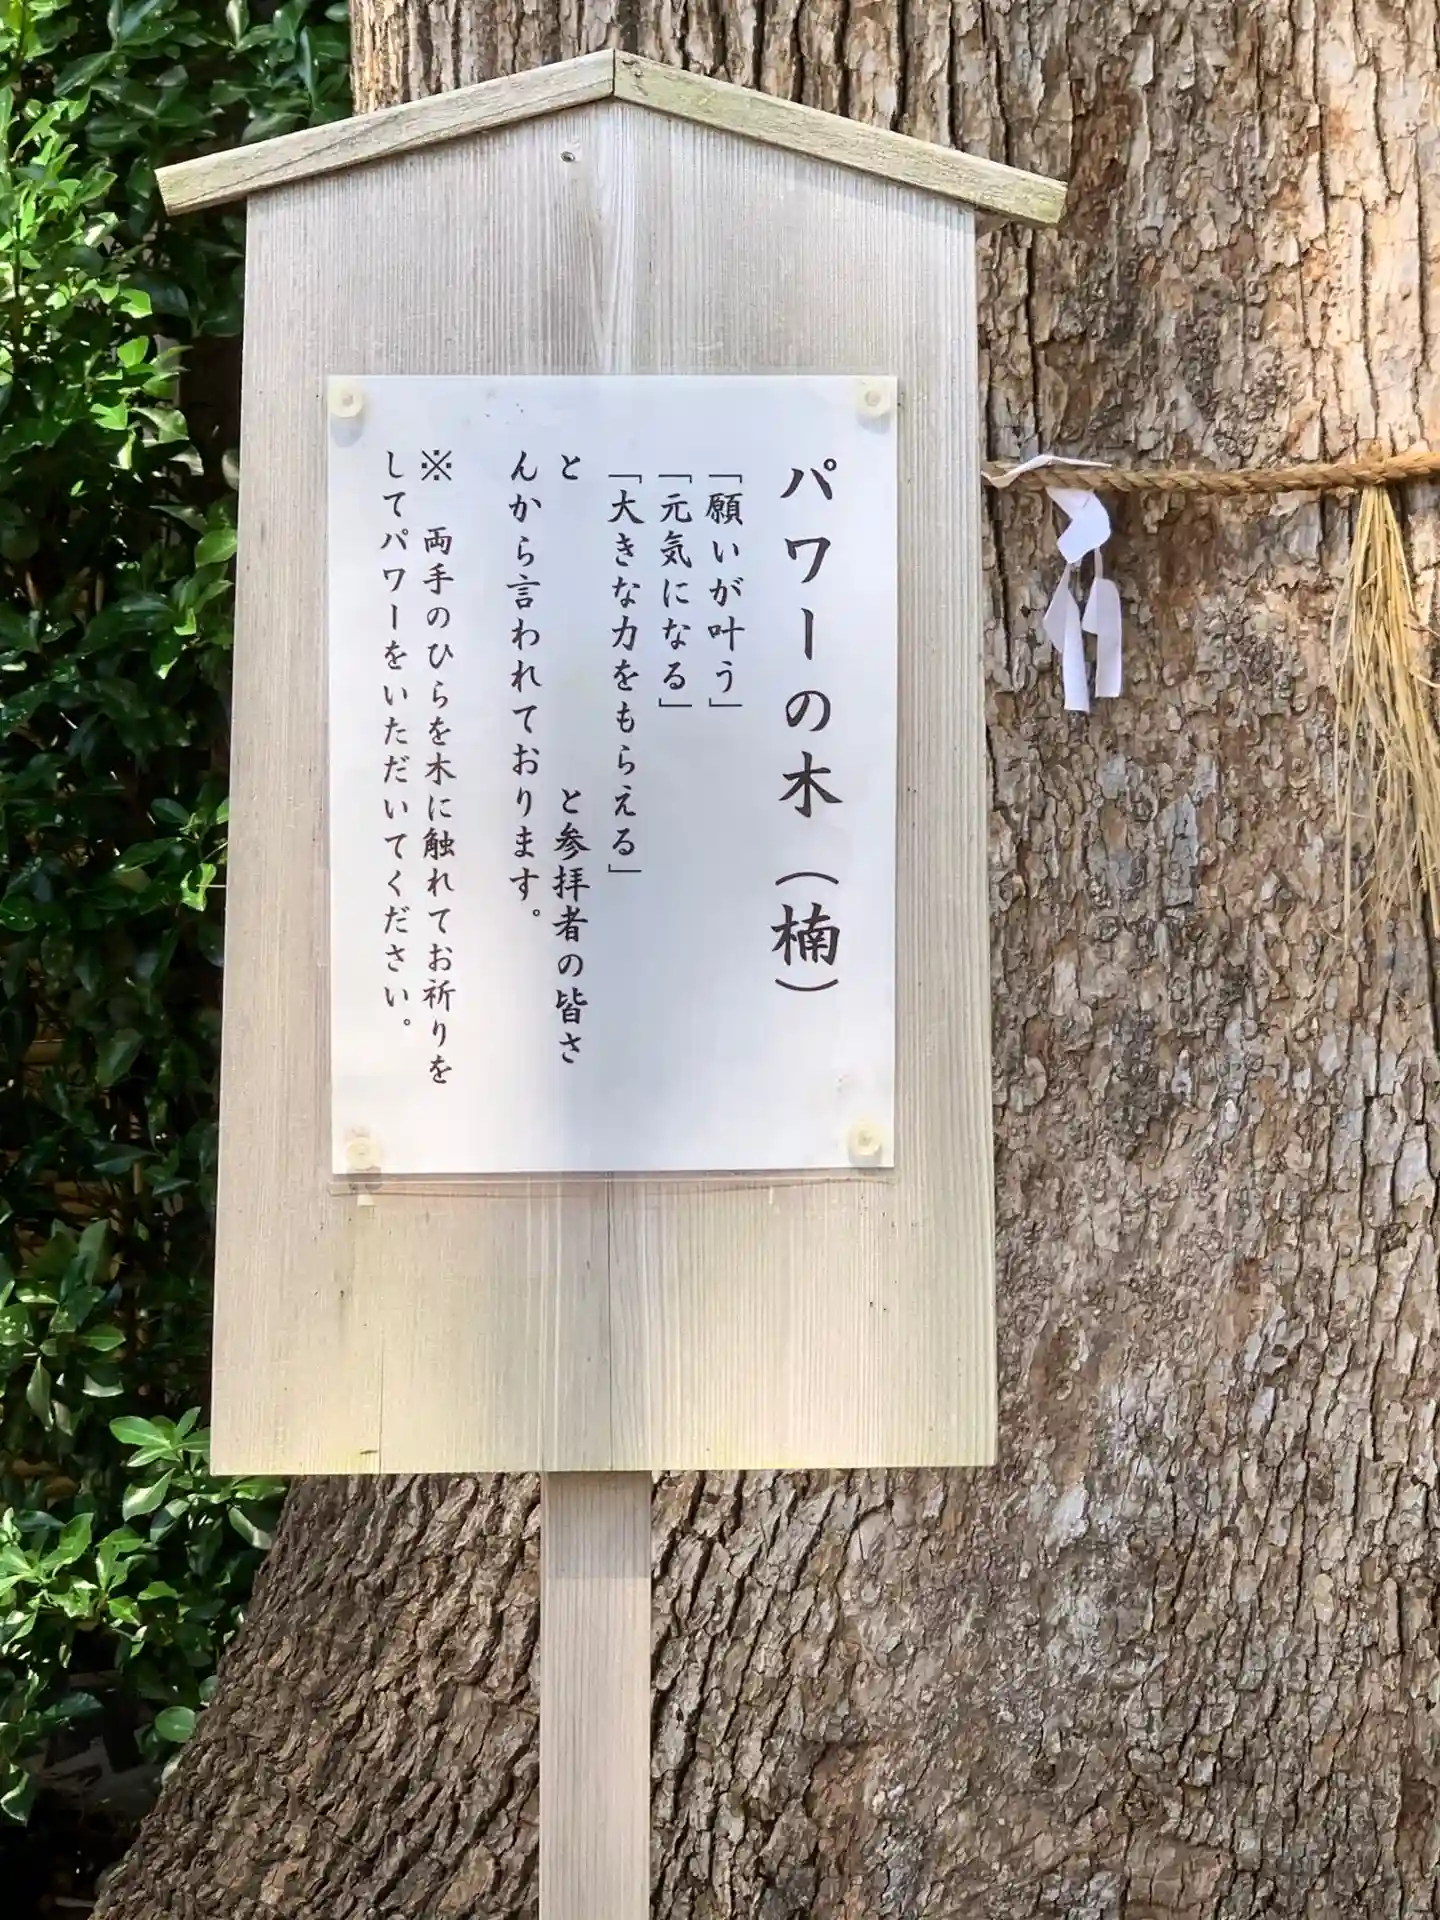 パワーの木（楠）
「願いが叶う」
「元気になる」
「大きな力をもらえる」
と　　　　　　　　と参拝者の皆さ
んから言われております。
※　両手のひらを木に触れてお祈りを
してパワーをいただいてください。